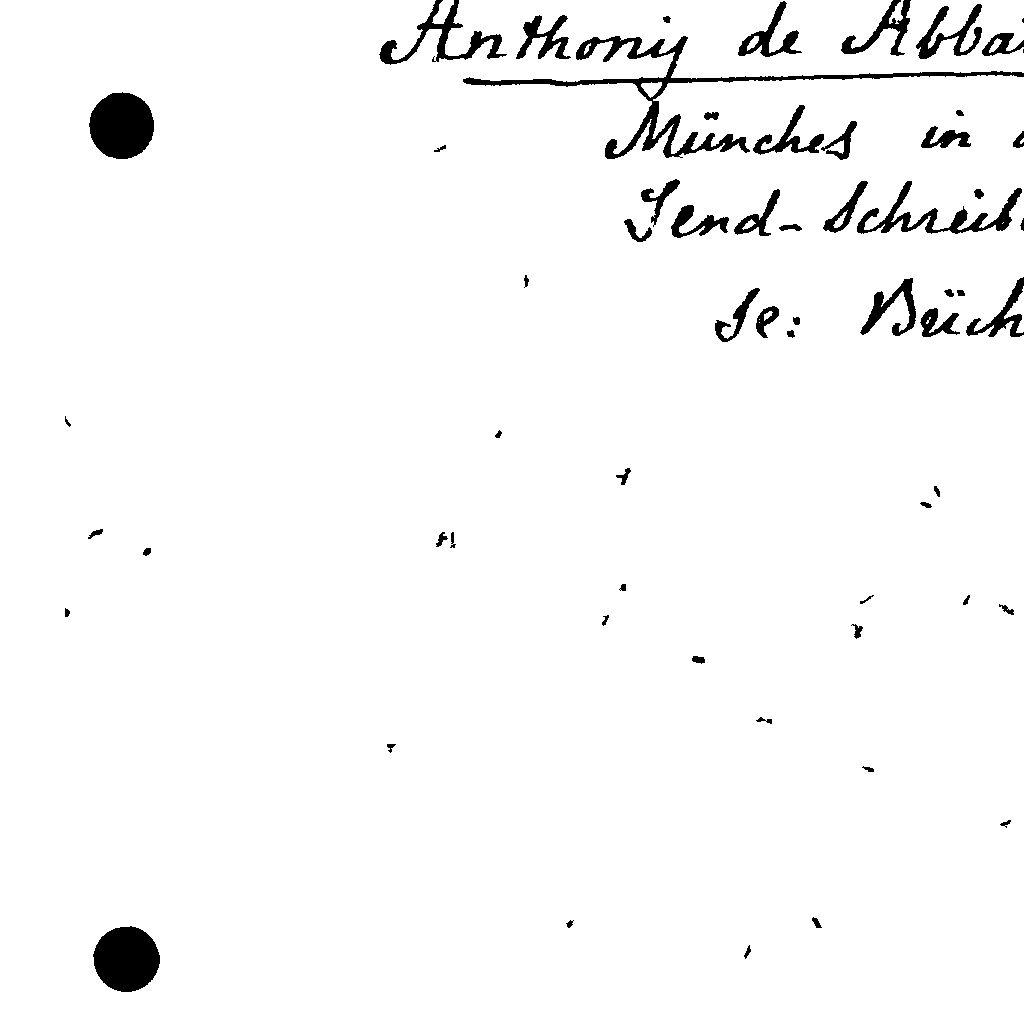 Anthonij de Abba
Münches in
Send-Schreib
Se: Büch